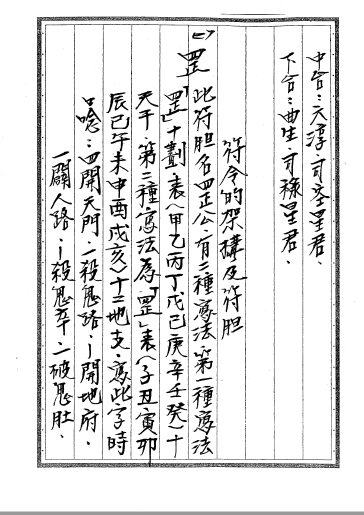 中台：六淳，司空星君。
下台：曲生，司祿星君。
符令的架構及符胆
(七)
罡 此符胆名四正公，有二種寫法，第一種寫法
「罡」十劃表（甲乙丙丁戊己庚辛壬癸）十
天干，第二種寫法為「罡」表（子丑寅卯
辰巳午未申酉戌亥）十二地支，寫此字時
口唸：四開天門，一殺鬼路，丨開地府，
一闢人路，丨殺鬼卒，二破鬼肚，